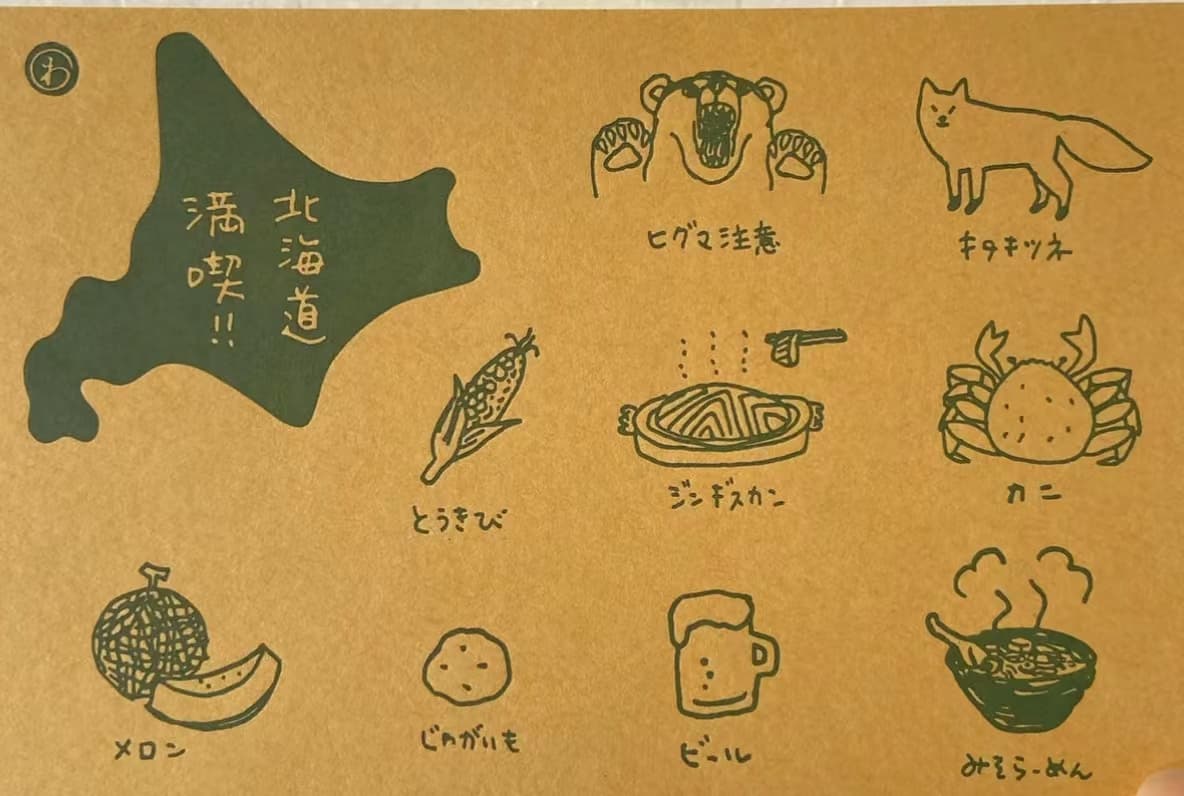 わ
北海道
満喫!!
ヒグマ注意
キタキツネ
とうきび
ジンギスカン
カニ
メロン
じゃがいも
ビール
みそらーめん